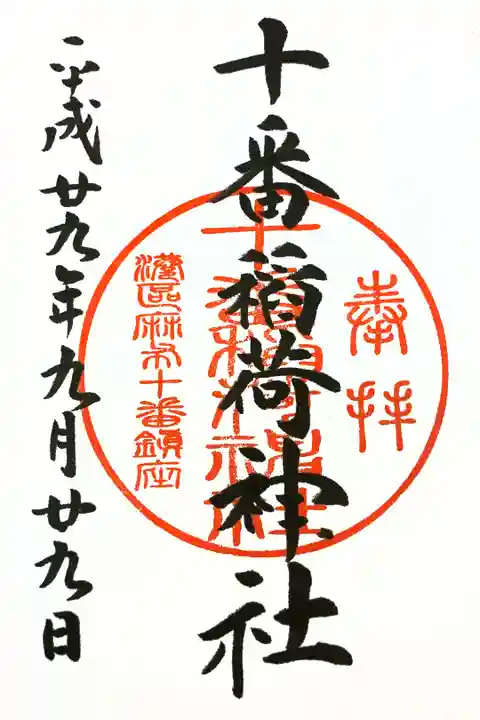 奉拝
十番稲荷神社
港區麻布十番鎮座
平成廿九年九月廿九日